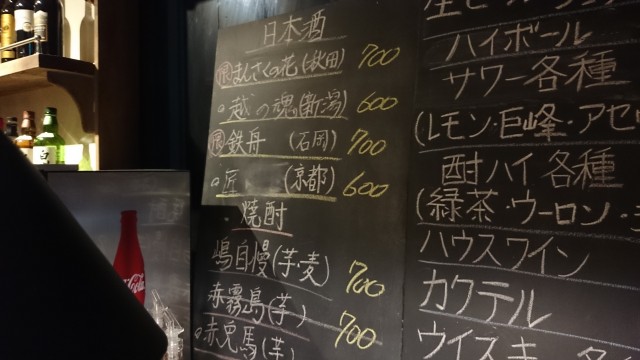 日本酒
限 まんさくの花(秋田) 700
越の魂(新潟) 600
限 鉄舟 (石岡) 700
匠 (京都) 600
焼酎
嶋自慢(芋・麦) 700
赤霧島(芋)
赤兎馬(芋) 700
ハイボール
サワー各種
(レモン・巨峰・アセ
酎ハイ各種
(緑茶・ウーロン・
ハウスワイン
カクテル
ウイスキー各
Coca-Cola